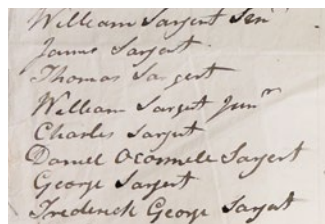 William Sargent Senr
James Sargent
Thomas Sargent
William Sargent Junr
Charles Sargent
Daniel OConnell Sargent
George Sargent
Frederick George Sargent